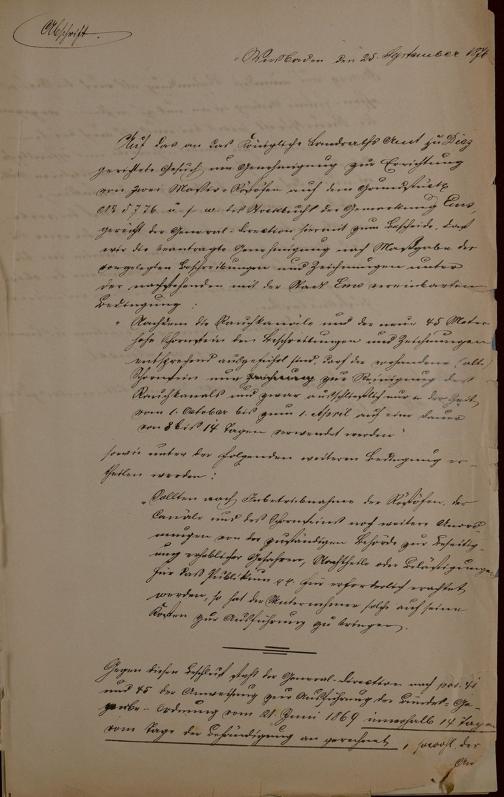 Abschrift.
Wiesbaden den 25 September 187
Auf das an das Königliche Landraths Amt zu Diez
gerichtete Gesuch um Genehmigung zur Errichtung
von zwei Röstöfen auf dem Grundstück
No 5776 u. s. w. des Stockbuchs der Gemarkung Ems,
gereicht der General-Direction hiermit zum Bescheide, daß
wir die beantragte Genehmigung nach Maßgabe der
vorgelegten Beschreibungen und Zeichnungen unter
der nachstehenden mit der Stadt Ems vereinbarten
Bedingung:
"Nachdem die Rauchkanäle und der neue 45 Meter
hohe Schornstein den Beschreibungen und Zeichnungen
entsprechend ausgeführt sind, darf der vorhandene (alte)
Schornstein nur zur Reinigung des
Rauchkanals und zwar ausschließlich nur in der Zeit
vom 1. October bis zum 1. April auf eine Dauer
von 8 bis 14 Tagen verwendet werden"
sowie unter der folgenden weiteren Bedingung er-
theilen werden:
"Sollten nach Inbetriebnahme der Röstöfen, der
Canäle und des Schornsteins noch weitere Anord-
nungen von der zuständigen Behörde zur Beseitig-
ung erheblicher Gefahren, Nachtheile oder Belästigungen
für das Publikum für erforderlich erachtet
werden, so hat der Unternehmer solche auf seine
Kosten zur Ausführung zu bringen.
Gegen diesen Bescheid steht der General-Direction nach pos. 41
und 45 der Anweisung zur Ausführung der Bundes-Ge-
werbe-Ordnung vom 21. Juni 1869 innerhalb 14 Tagen
vom Tage der Behändigung an gerechnet, sowohl der
An